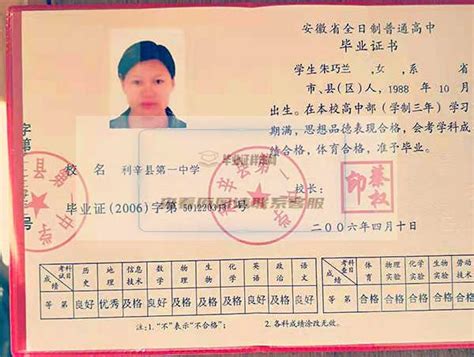 安徽省全日制普通高中
毕业证书
学生朱巧兰,女,系 省
市、县(区)人,1988年10月
出生。在本校高中部(学制三年)学习
期满,思想品德表现合格,会考学科成
绩合格,体育合格,准予毕业。
校 名 利辛县第一中学
校长:
蔡权印
毕业证(2006)字第 号
二00六年四月十日
字第 号
考试科目 历史 地理 信息技术 数学 物理 生物 化学 英语 政治 语文
成绩
等第 良好 优秀 及格 及格 及格 及格 及格 良好 良好 良好
考查科目 体育 物理实验 化学实验 生物实验 劳动技术
成绩
等第 合格 合格 合格 合格 合格
注:1."不"表示"不合格"; 2.各科成绩涂改无效。